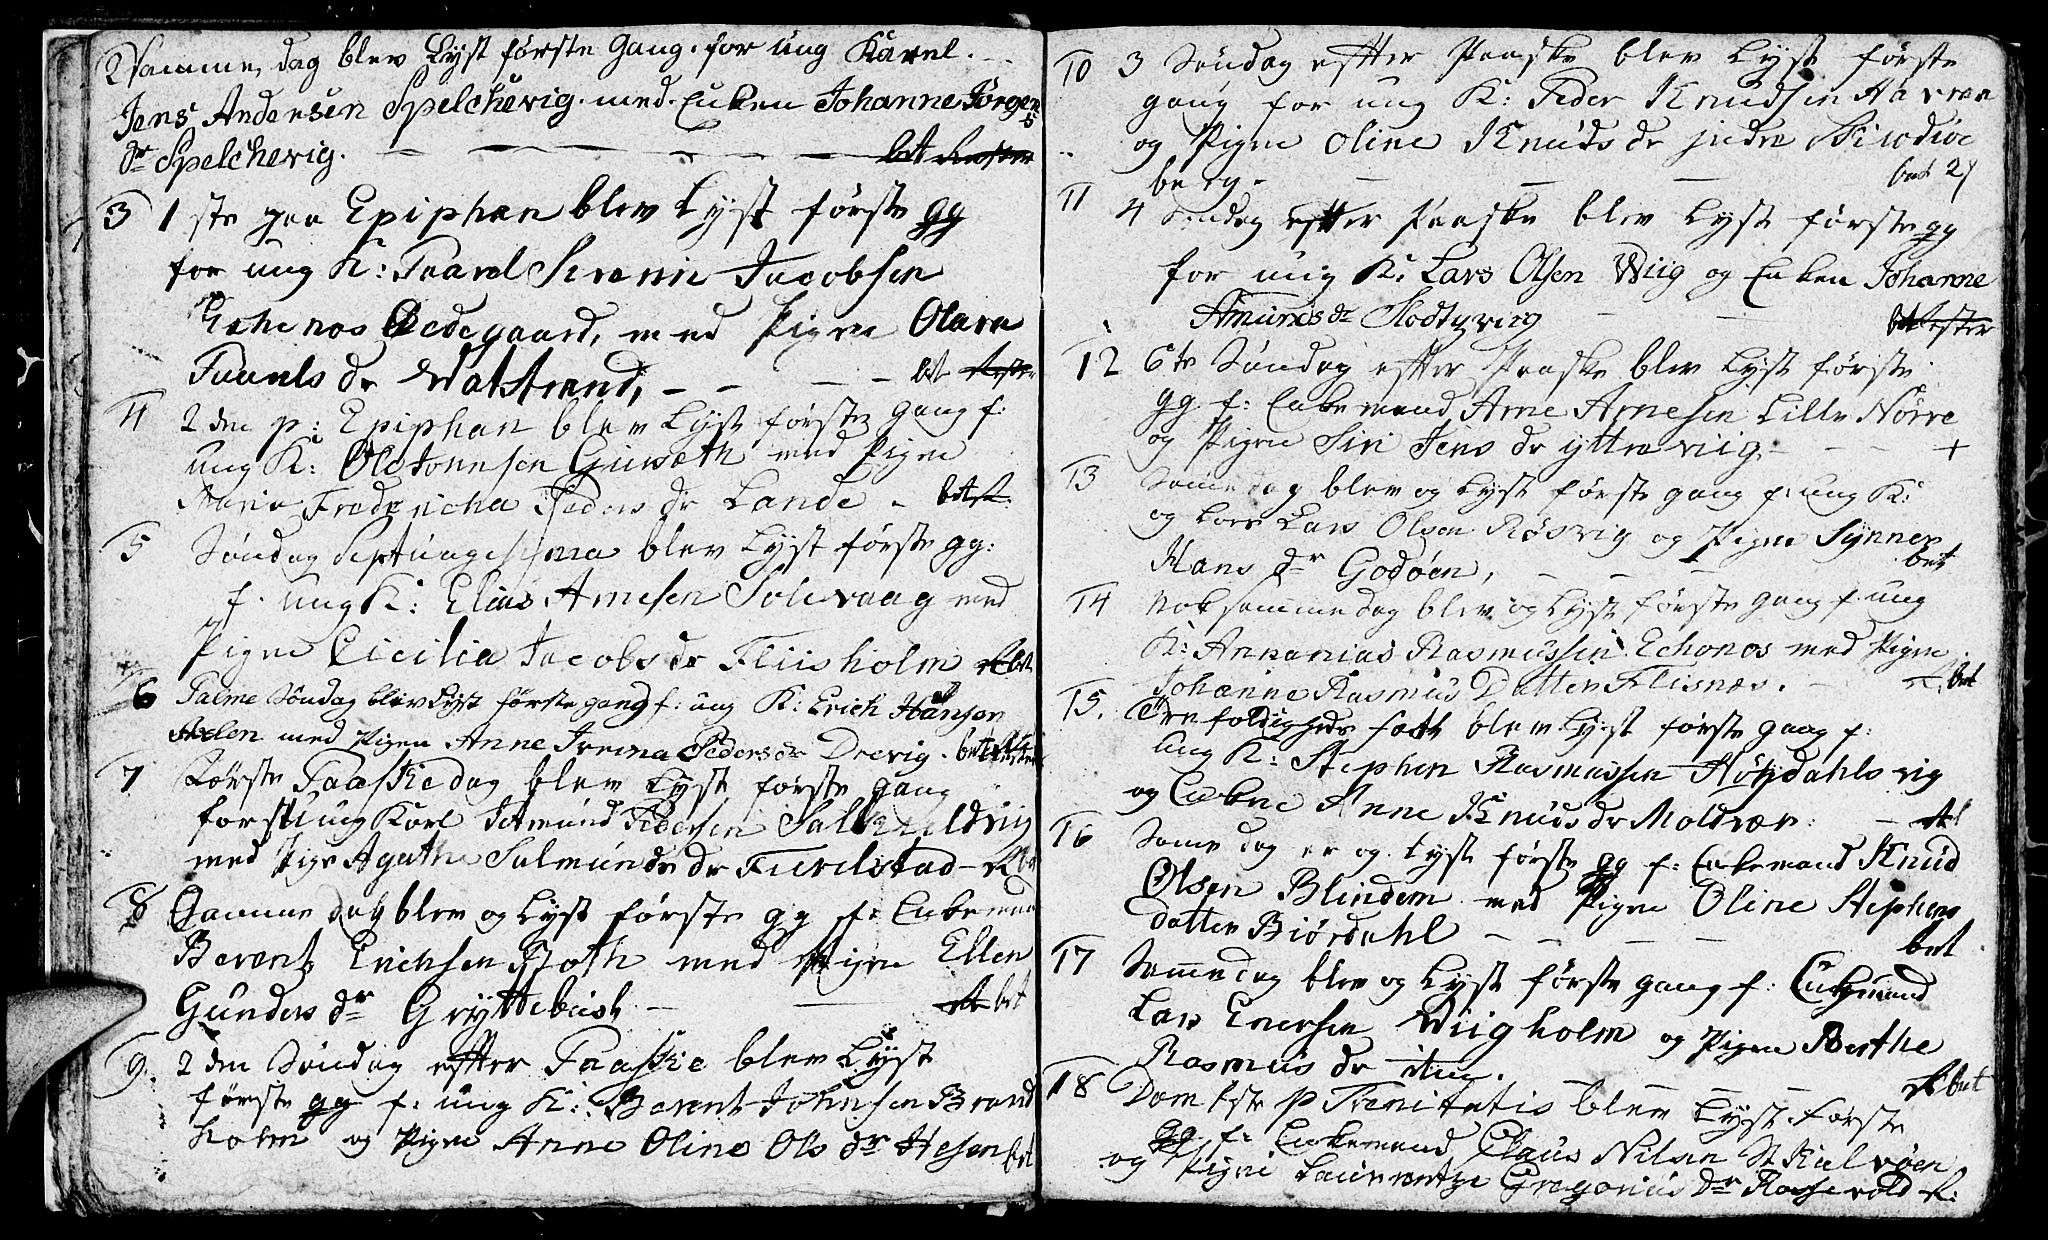 2 Samme dag blev Lyst første Gang for ung Karel
Jens Andersen Spelchevig med Enken Johanne Jørgens
dr Spelchevig. bet Rester
3 1 ste paa Epiphan blev Lyst første gg
for ung K: Paavel Jacobsen
Echenos Ødegaard, med Pigen Olava
Paavels dr Watstrand, bet Rester
4 2 den p: Epiphan blev Lyst første Gang f:
ung K: Ole Johnsen med Pigen
Maria Fredericha Peders dr Lande - bet
5 Søndag Septuagesima blev Lyst første gg:
f. ung K: Elias Arnesen Solevaag med
Pigen Cicilia Jacobs dr Fliisholm bet
6 Palme Søndag blev Lyst første gang f: ung K: Erich Hansen
med Pigen Anne Irenna Peders dr Drevig. bet
7 Første Paaskedag blev Lyst første gang
for ung Karl Pedersen
med Pige Agathe Salmunds dr
8 Samme dag blev og Lyst første gg f: Enkemand
Berent Erichsen med Pigen Ellen
Gunders dr Gryttebust - bet
9. 2 den Søndag efter Paaske blev Lyst
første gg f: ung K: Berent Johnsen Brand
holm og Pigen Anne Oline Ols dr Hesen bet
10 3 Søndag efter Paaske blev Lyst første
gang for ung K: Peder Knudsen
og Pigen Oline Knuds dr jndre
berg - bet
11 4 Søndag efter Paaske blev Lyst første gg
for ung K: Lars Olsen Wiig og Enken Johanne
Amunds dr bet Rester
12 6te Søndag efter Paaske blev Lyst første
gg f: Enkemand Arne Arnesen Lille Nørve
og Pigen Siri Jens dr yttre viig - +
13 Same dag blev og Lyst første gang f: ung K:
Lars Olsen Røsvig og Pigen Synnev
Hans dr Godøen, bet
14 Nok samme dag blev og Lyst første Gang f. ung
K: Annanias Rasmussen Echonos med Pigen
Johanne Rasmus Datter Flisnæs. bet
15. Trefoldigheds fest blev Lyst første gang f:
ung K: Stephen Rasmussen
og Enkene Anne Knuds dr Moldvær:
16 Same dag er og Lyst første gg f: Enkemand Knud
Olsen Blindem med Pigen Oline Stephens
datter Biørdahl bet
17 Same dag blev og Lyst første gang f: Enkemand
Lars Wiigholm og Pigen Berthe
Rasmus dr
18 Dom 1ste p Trenitatis blev Lyst første bet
gg f: Enkemand Claus Nilsen
og Pigen Gregorius dr